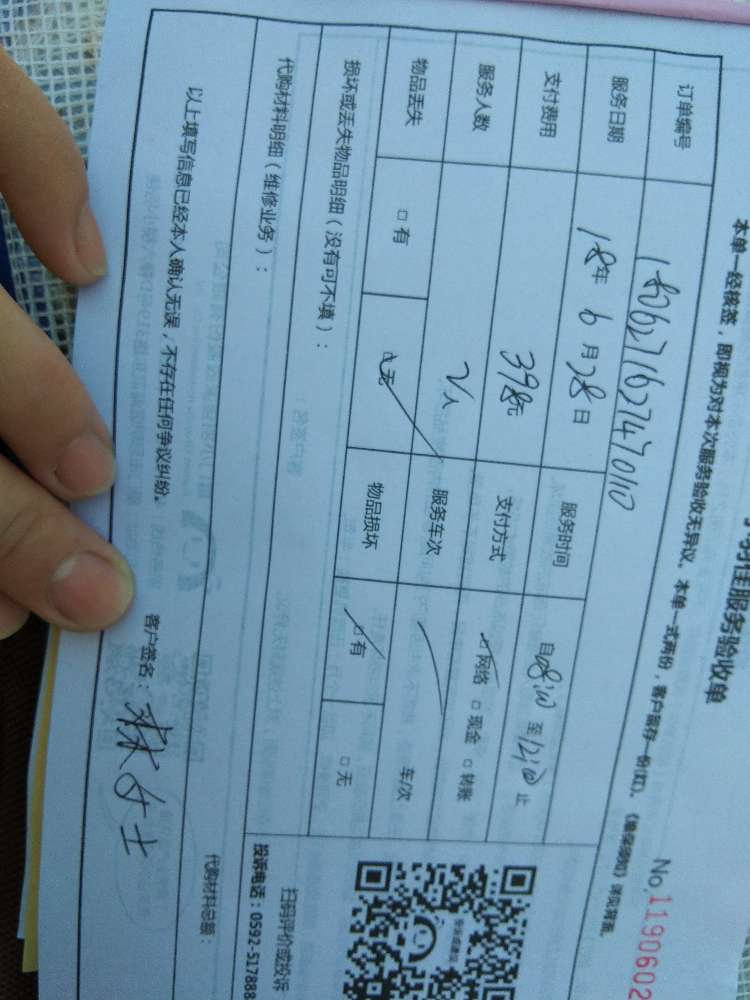 佳服务验收单
No.1190602
本单一经核签，即视为对本次服务验收无异议。本单一式两份，客户留存一份(红)。
订单编号 180627162747010
服务日期 18年6月28日 服务时间 自08:00至12:00止
支付费用 398元 支付方式 ☑网络 □现金 □转账
服务人数 2人 服务车次 车/次
物品丢失 □有 ☑无 物品损坏 ☑有 □无
损坏或丢失物品明细（没有可不填）：
代购材料明细（维修业务）：
代购材料总额：
扫码评价或投诉
投诉电话：0592-517888
以上填写信息已经本人确认无误，不存在任何争议纠纷。
客户签名：林女士